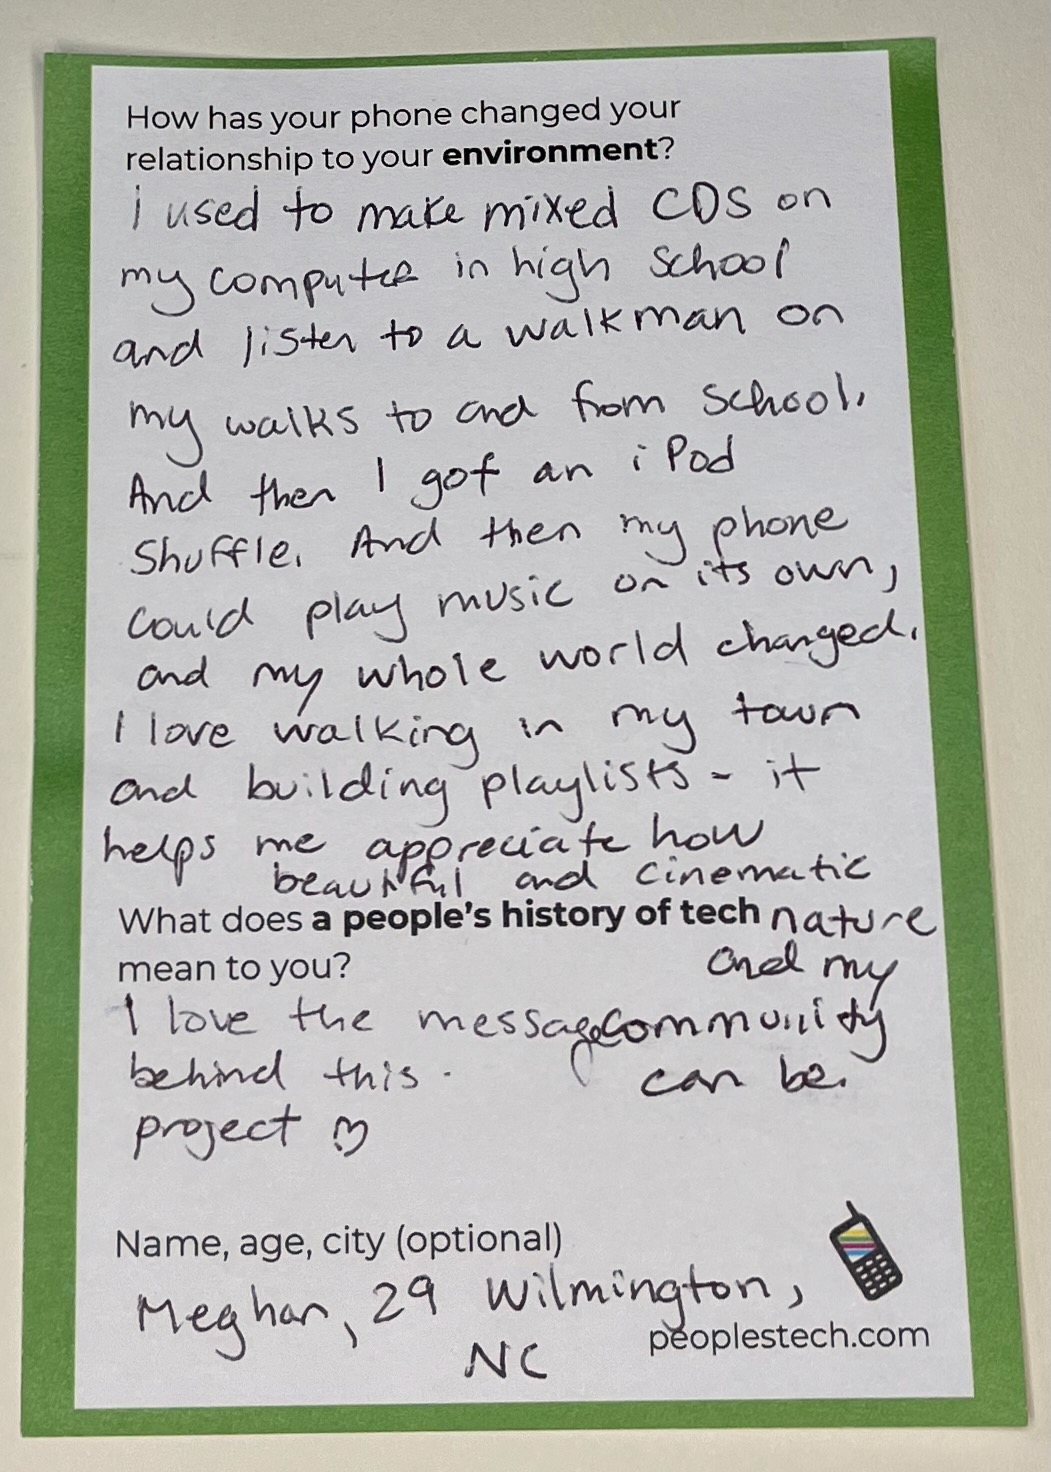 How has your phone changed your
relationship to your environment?
i used to make mixed CDS on
my computer in high school
and listen to a walkman on
my walks to and from school.
And then I got an iPod
Shuffle. And then my phone
could play music on its own,
and my whole world changed.
I love walking in my town
and building playlists - it
helps me appreciate how
beautiful and cinematic
nature
and my
community
can be.
What does a people's history of tech
mean to you?
I love the message
behind this
project
Name, age, city (optional)
Meghan, 29 Wilmington,
NC
peoplestech.com